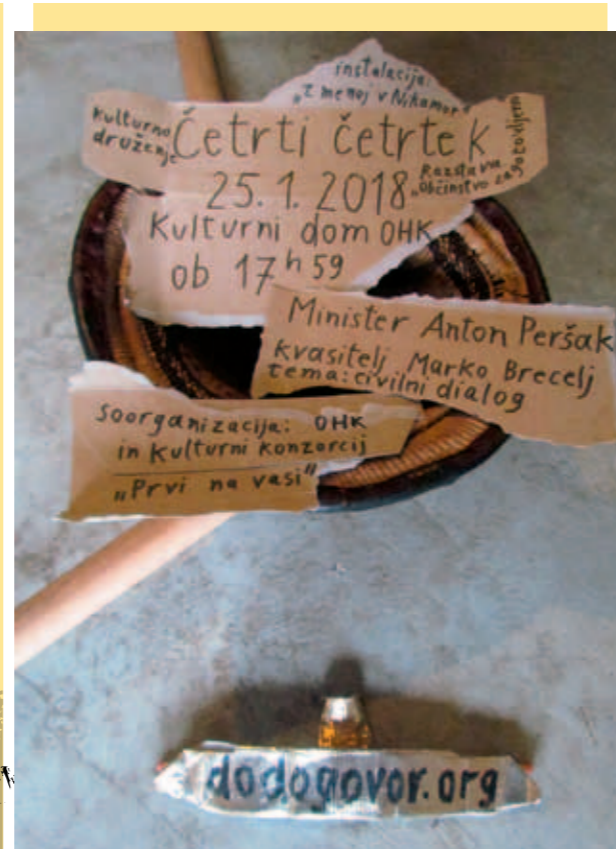 instalacija:
"z menoj v Nikamor"
Kulturno
druženje
Četrti četrtek
25.1.2018
Razstava
"Občinstvo
Kulturni dom OHK
ob 17h59
Minister Anton Peršak
kvasitelj Marko Brecelj
tema: civilni dialog
soorganizacija: OHK
in Kulturni konzorcij
"Prvi na vasi"
dodogovor.org